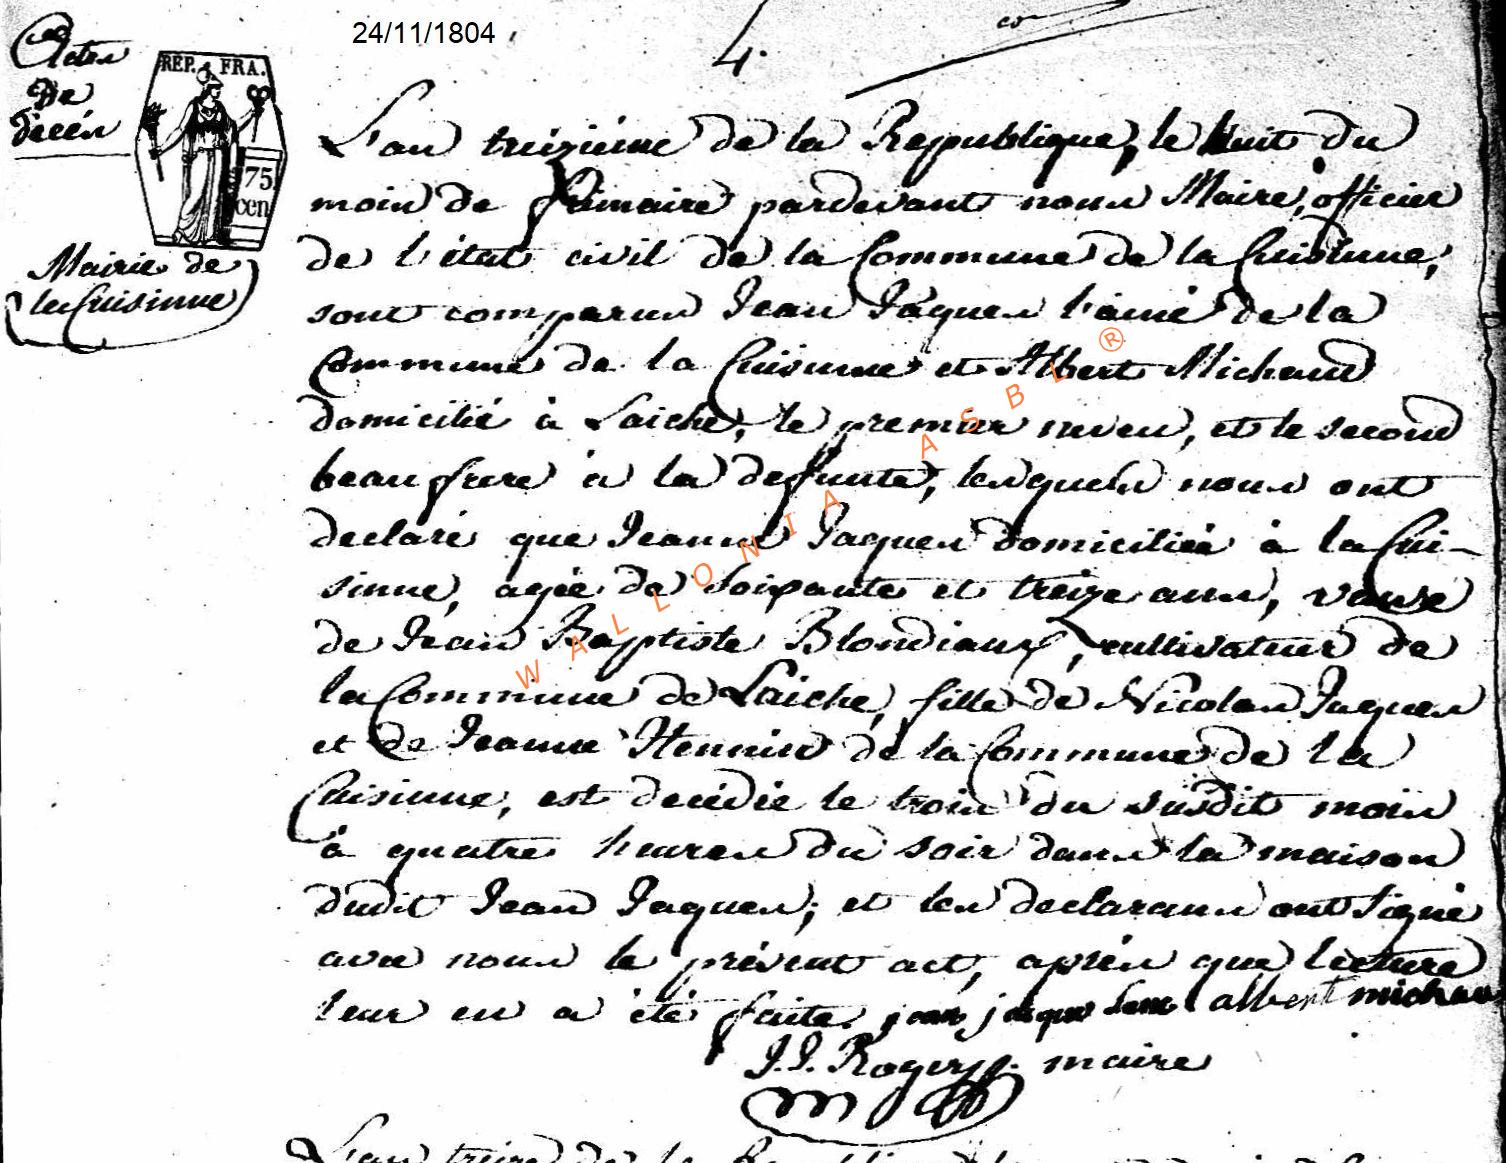 24/11/1804
4.
Actes
De
Décés
REP. FRA.
75
cen
Mairie de
la Cuisinne
L'an treizième de la Republique, le huit du
mois de frimaire pardevant nous Maire, officier
de l'état civil de la Commune de la Cuisinne,
sont comparus Jean Jaques l'ainé de la
Commune de la Cuisinne et Albert Michaud
domicilié à Laiche, le premier neveu, et le second
beaufrere à la defunte, lesquels nous ont
declaré que Jeanne Jaques domiciliée à la Cui-
sinne, agée de Soixante et treize ans, veuve
de Jean Baptiste Blondiaux, cultivateur de
la Commune de Laiche, fille de Nicolas Jaques
et de Jeanne Hennin de la Commune de la
Cuisinne, est decédée le trois du susdit mois
à quatre heures du soir dans la maison
dudit Jean Jaques; et les declarans ont signé
avec nous le présent act, après que lecture
leur en a été faite. jean jaque albert michau
J. J. Rogers maire
WALLONIA ASBL ®
L'an treize de la Republique